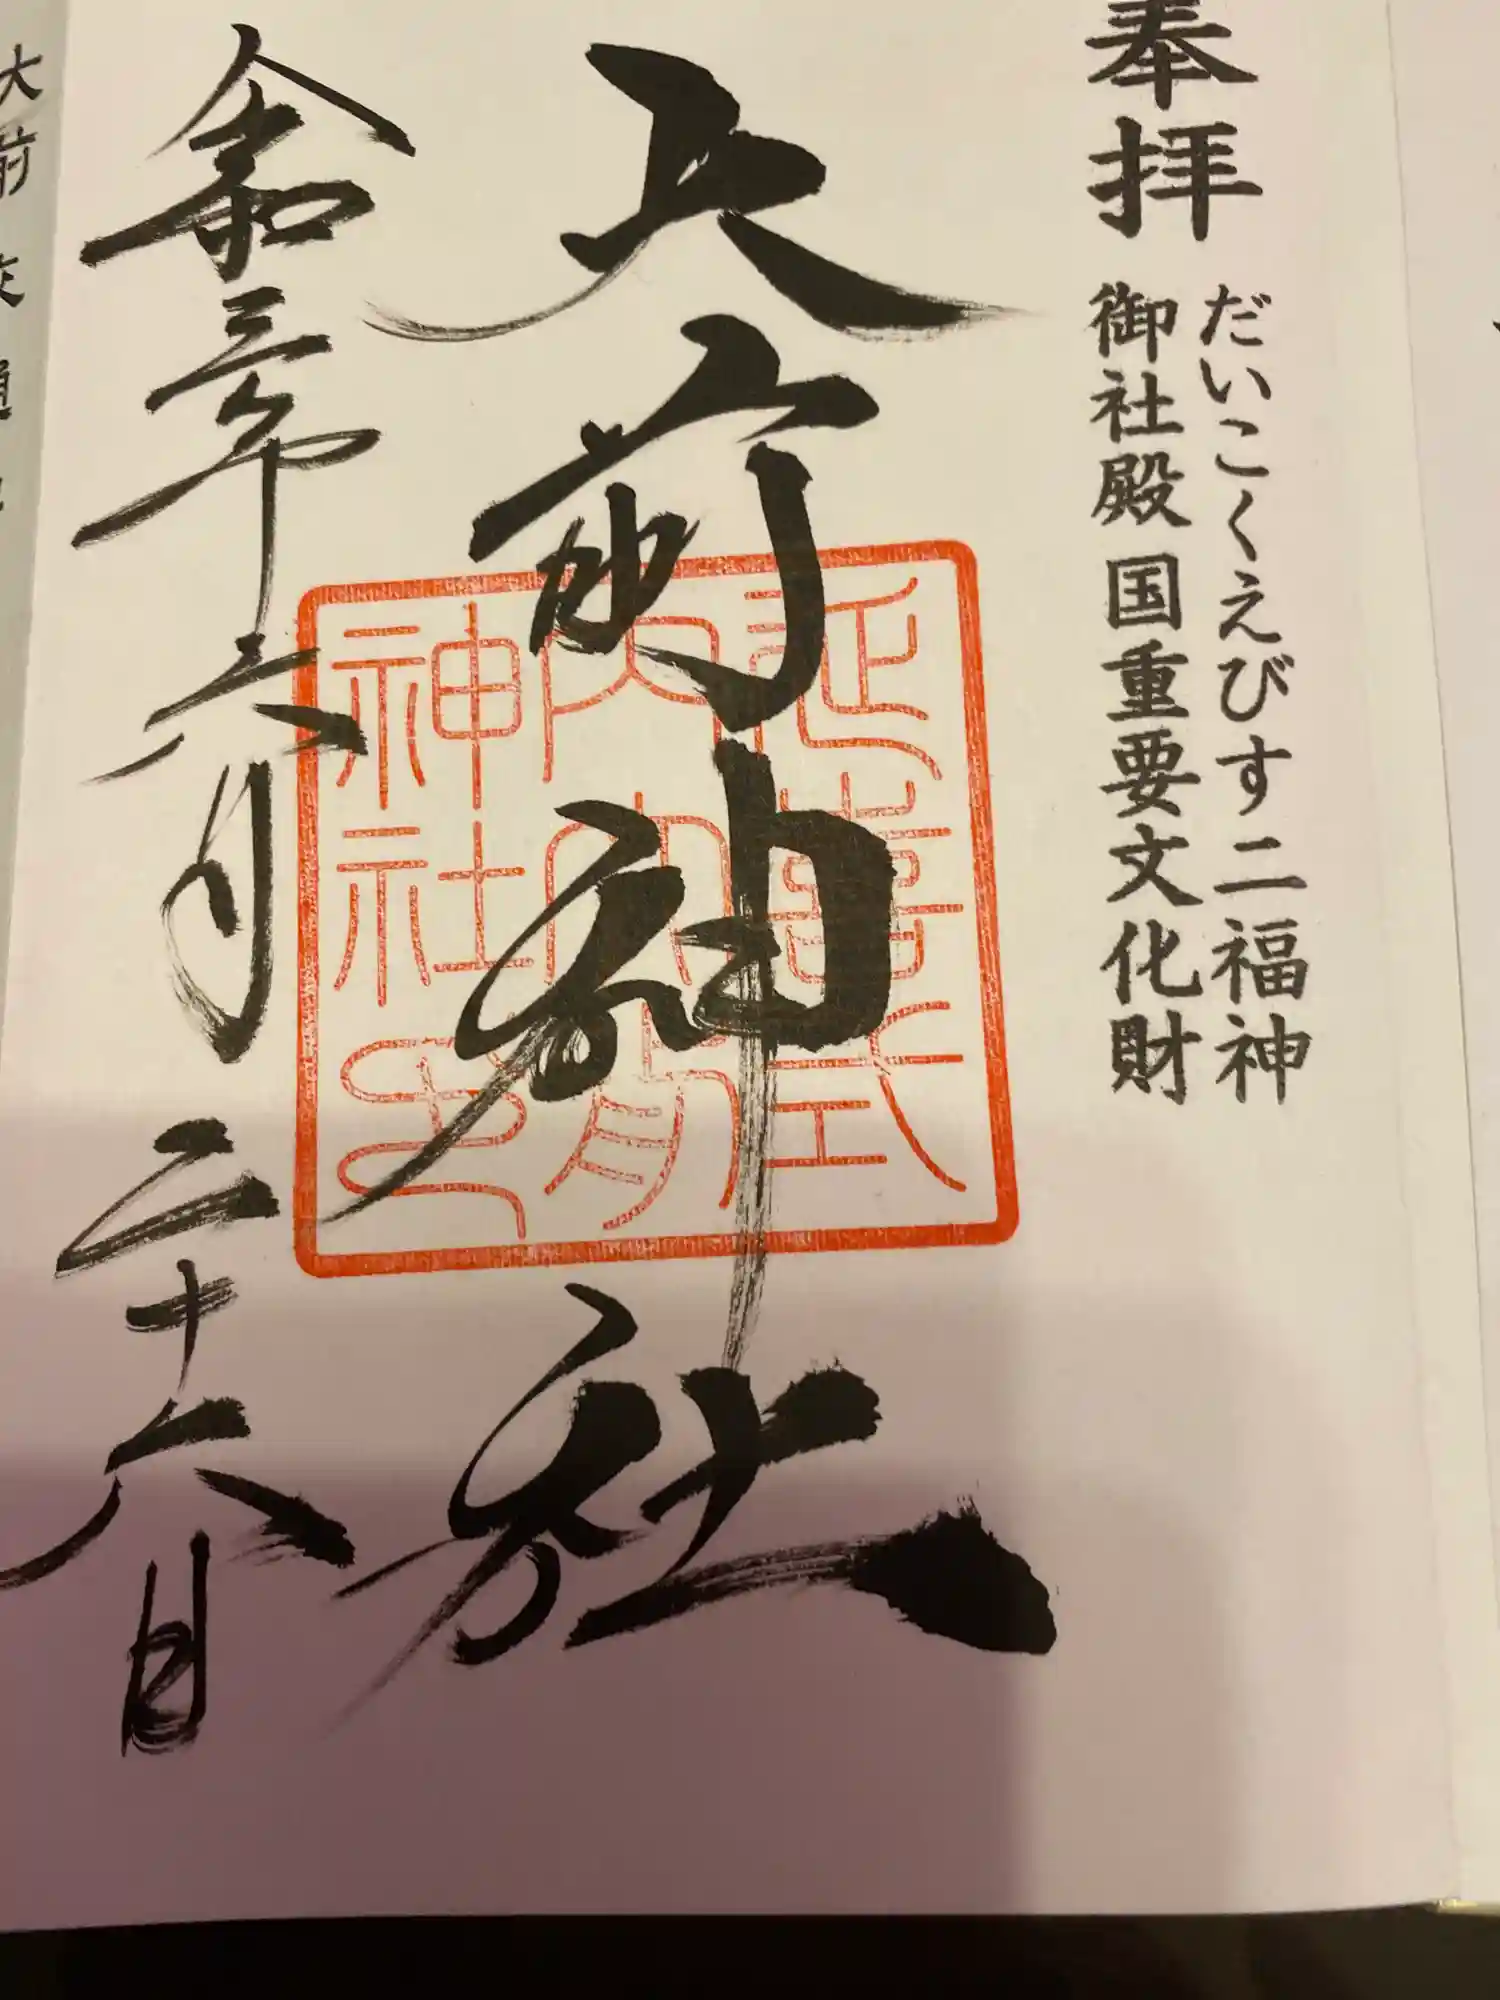 奉拝
だいこくえびす二福神
御社殿 国重要文化財
大前神社
令和三年六月二十六日
延喜式
内大前
神社之印
大前